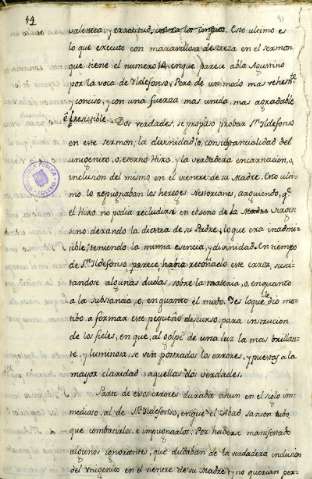 valentia, y exactitud,
lo que executo con maravillosa destreza en el sermon
que tiene el numero en que parece abla Agustino
por la voca de Ildefonso; Pero de un modo mas
y conciso, y con una fuerza mas unida, mas agradable,
è irresistible. Dos verdades, se propuso probar Sn. Ildefonso
en este sermon; la divinidad, ò consubstancialidad del
unigenito, ò eterno Hixo, y la verdadera encarnacion, o
inclusion del mismo en el vientre de su Madre. Esto ulti-
mo lo repugnaban los hereges Nestorianos, arguiendo, qe.
el Hixo no podia recludirse en el seno de la
sino dexando la diestra de su Padre, lo que era inadmi-
sible, teniendo la misma esencia, y divinidad. En tiempo
de Sn. Ildefonso parece havia retoñado este error, susci-
tandose algunas dudas sobre la materia, ò, en quanto
a la substancia, ò, en quanto el modo. De lo que dio mo-
tibo a formar este pequeño discurso, para instruccion
de los fieles, en que, al golpe de una luz la mas brillan-
te, y luminosa, se ven postrados los errores, y puestas a la
mayor claridad aquellas dos verdades.
Parte de esos errores duraba aun en el siglo in-
mediato, al de Sn. Ildefonso, en que el Abad Sanson tubo
que combatirlos, è impugnarlos. Por haberse manifestado
algunos ignorantes, que dudaban de la verdadera inclusion
del Unigenito en el vientre de su Madre, y no querian per-